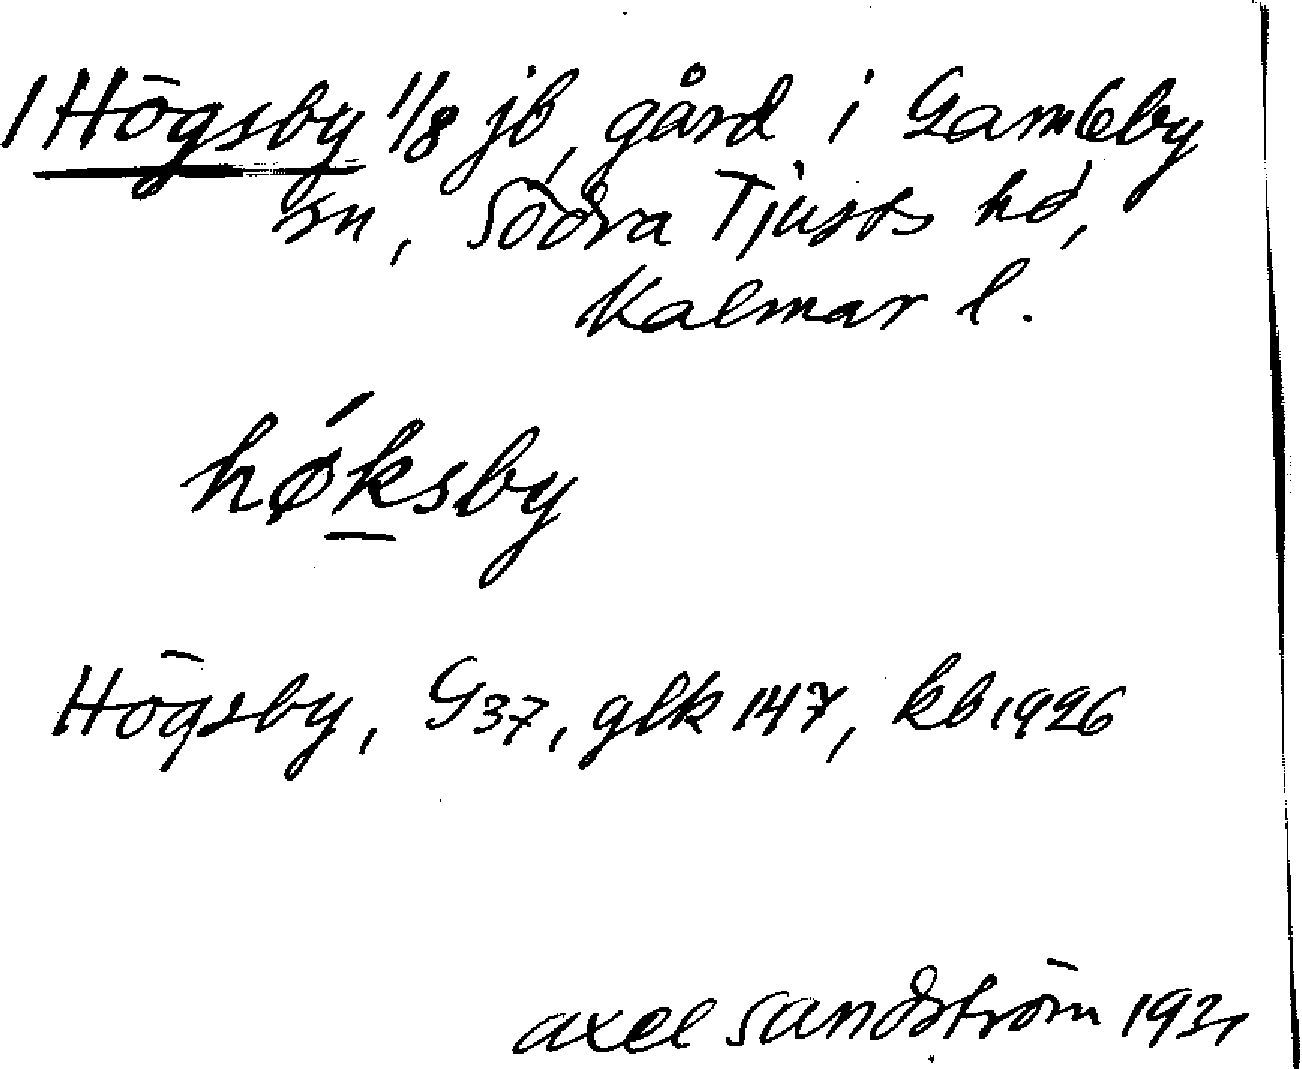 1 Högsby 1/8 jb, gård i Gamleby
sn, Södra Tjusts hd,
Kalmar l.
hǿksby
Högsby, G37, glk 147, kb 1926
Axel Sandström